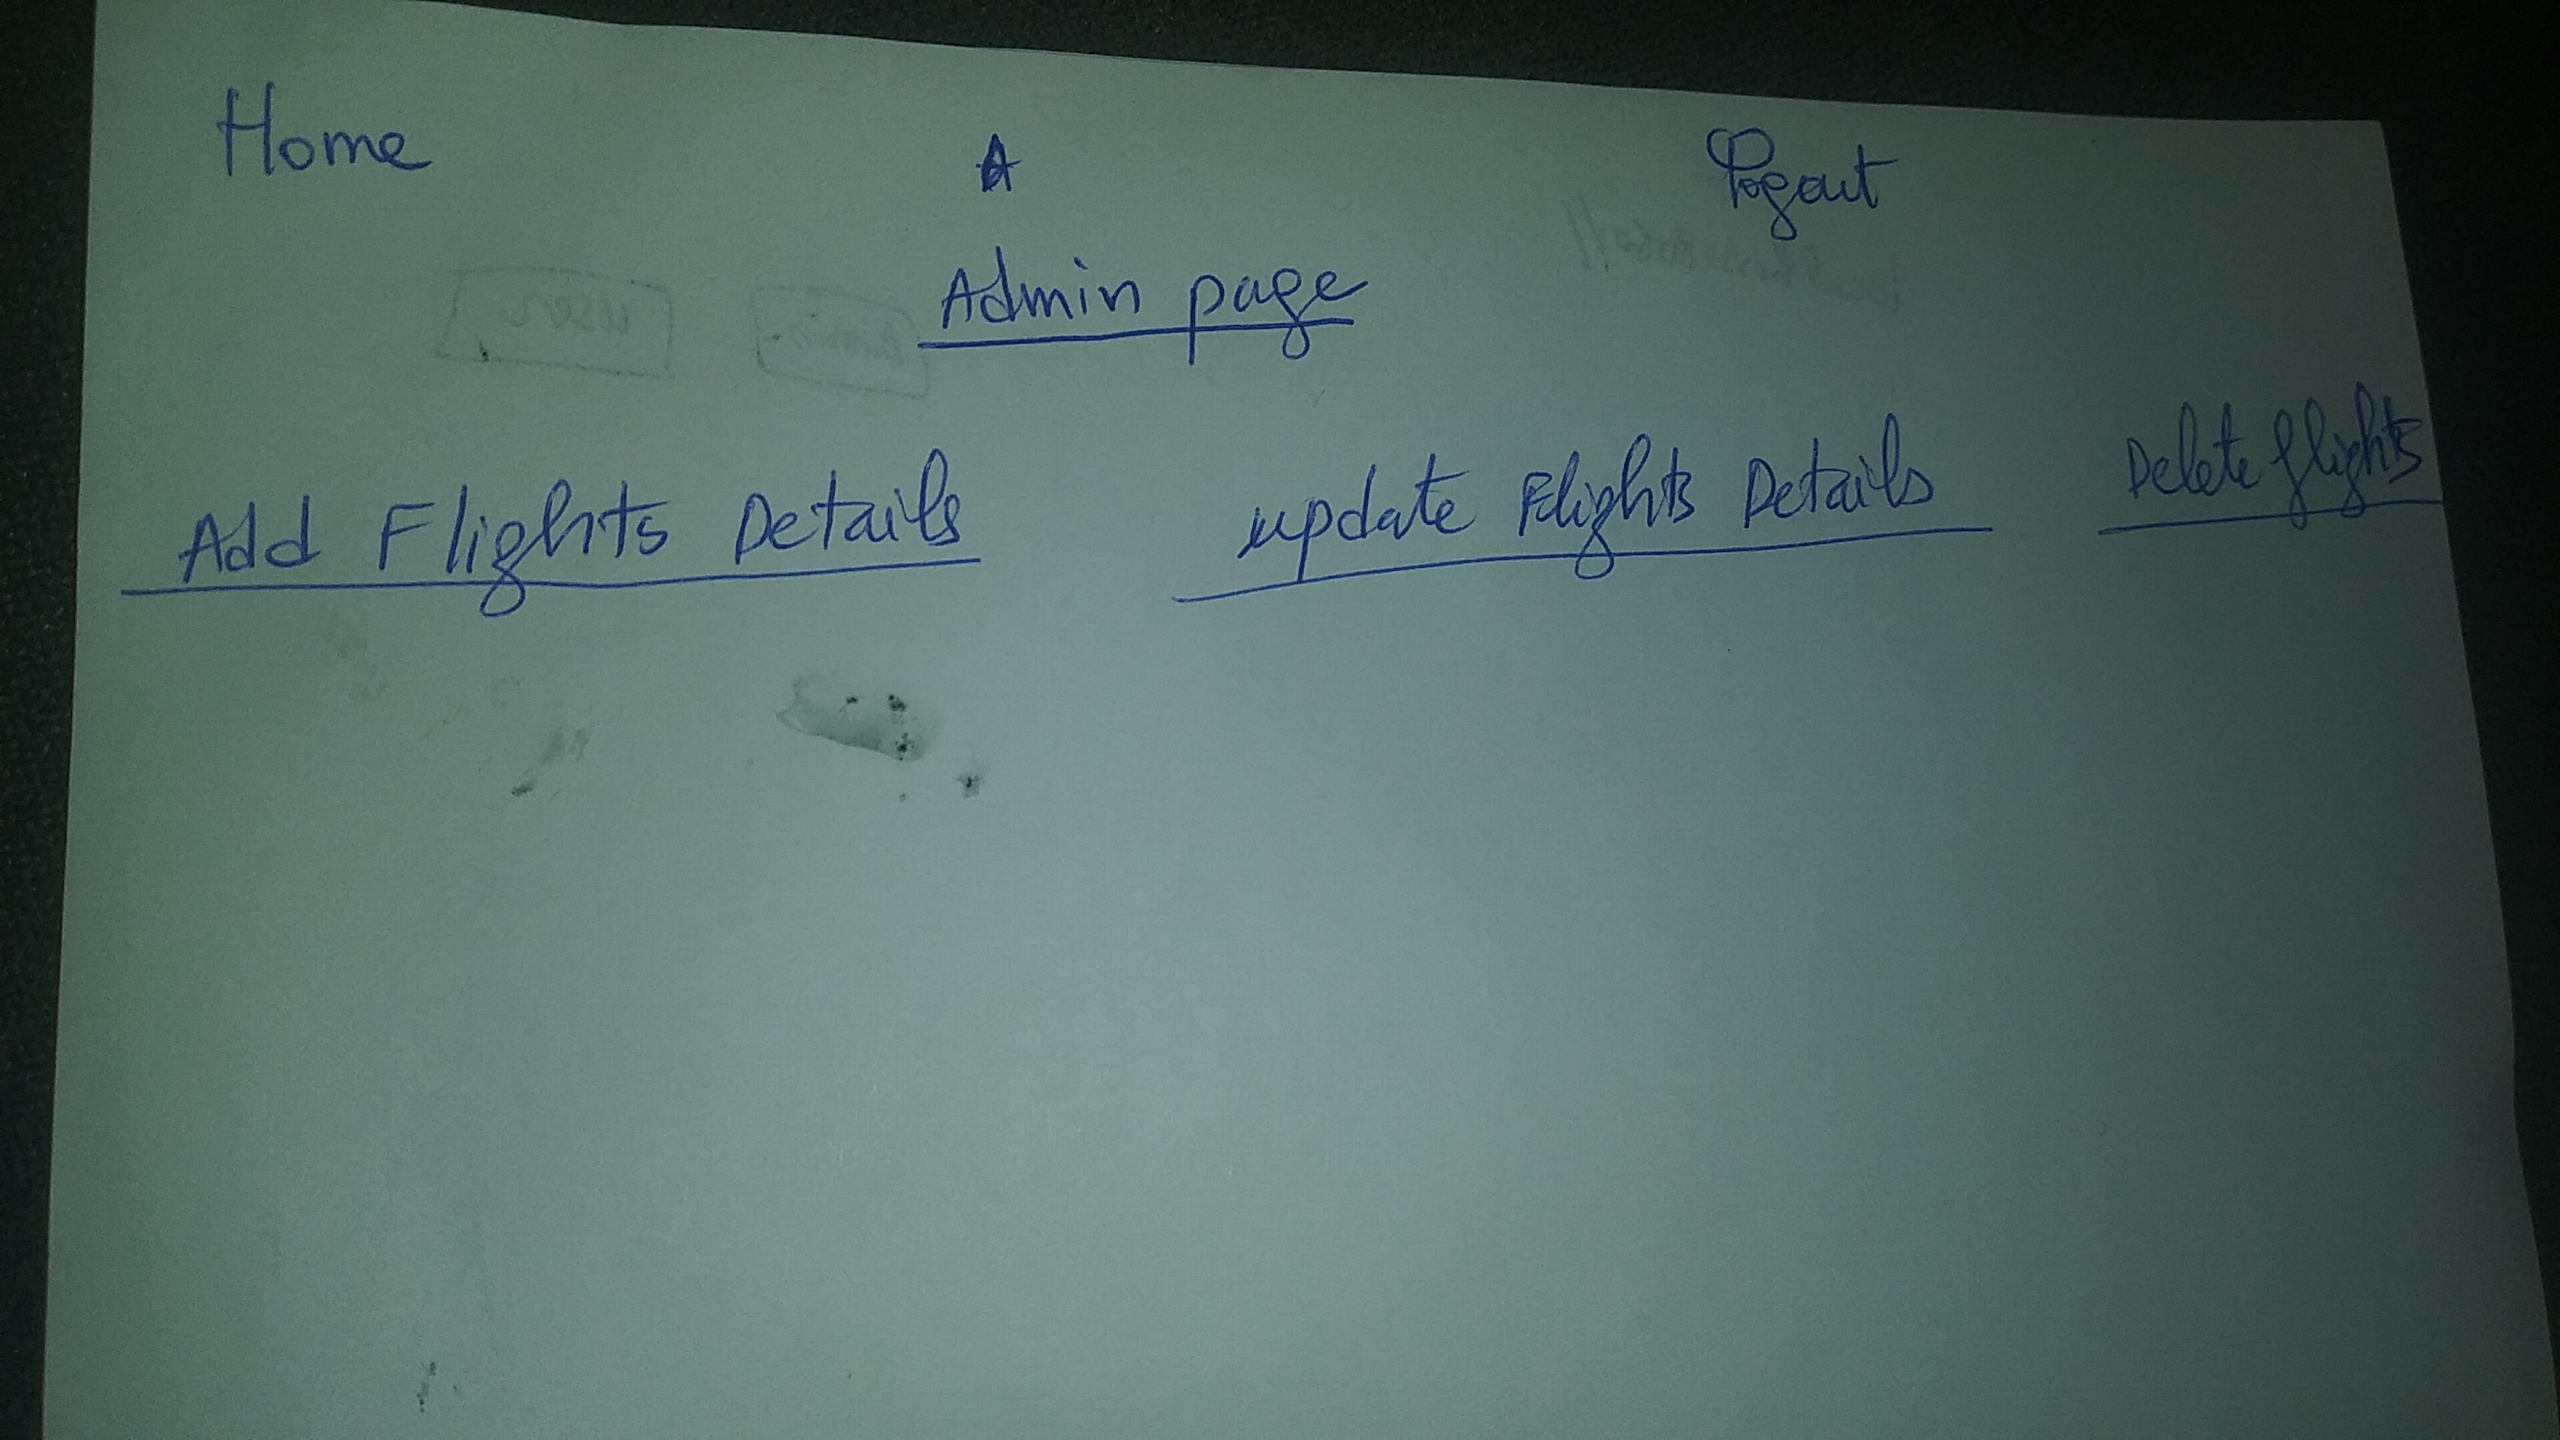 Home Logout
Admin page
Add Flights Details update Flights Details Delete flights